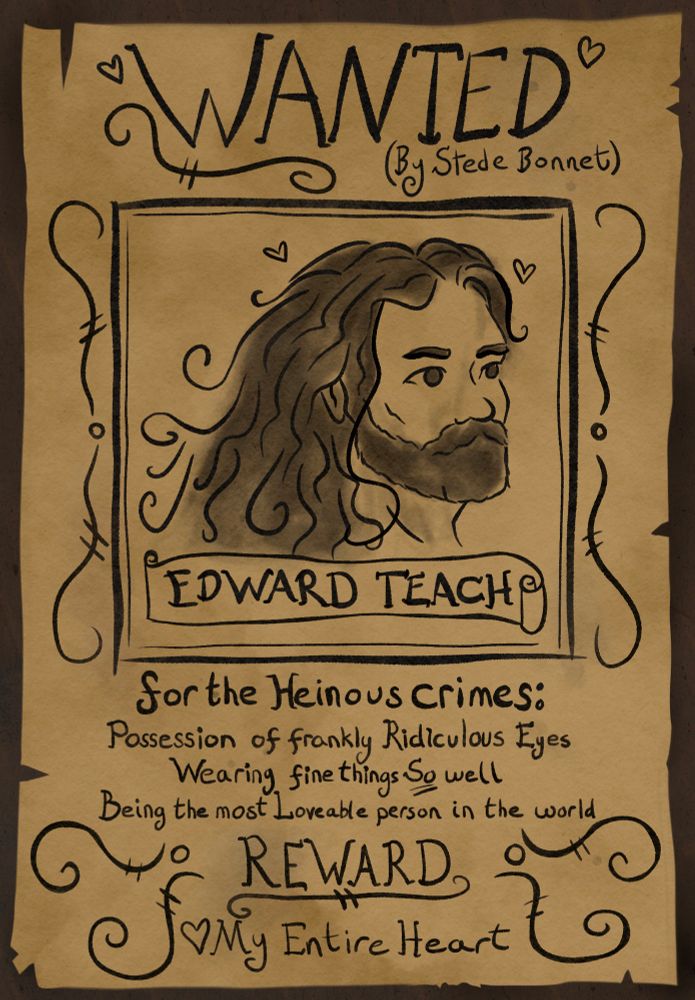 WANTED
(By Stede Bonnet)
EDWARD TEACH
for the Heinous crimes:
Possession of frankly Ridiculous Eyes
Wearing fine things So well
Being the most Loveable person in the world
REWARD
My Entire Heart